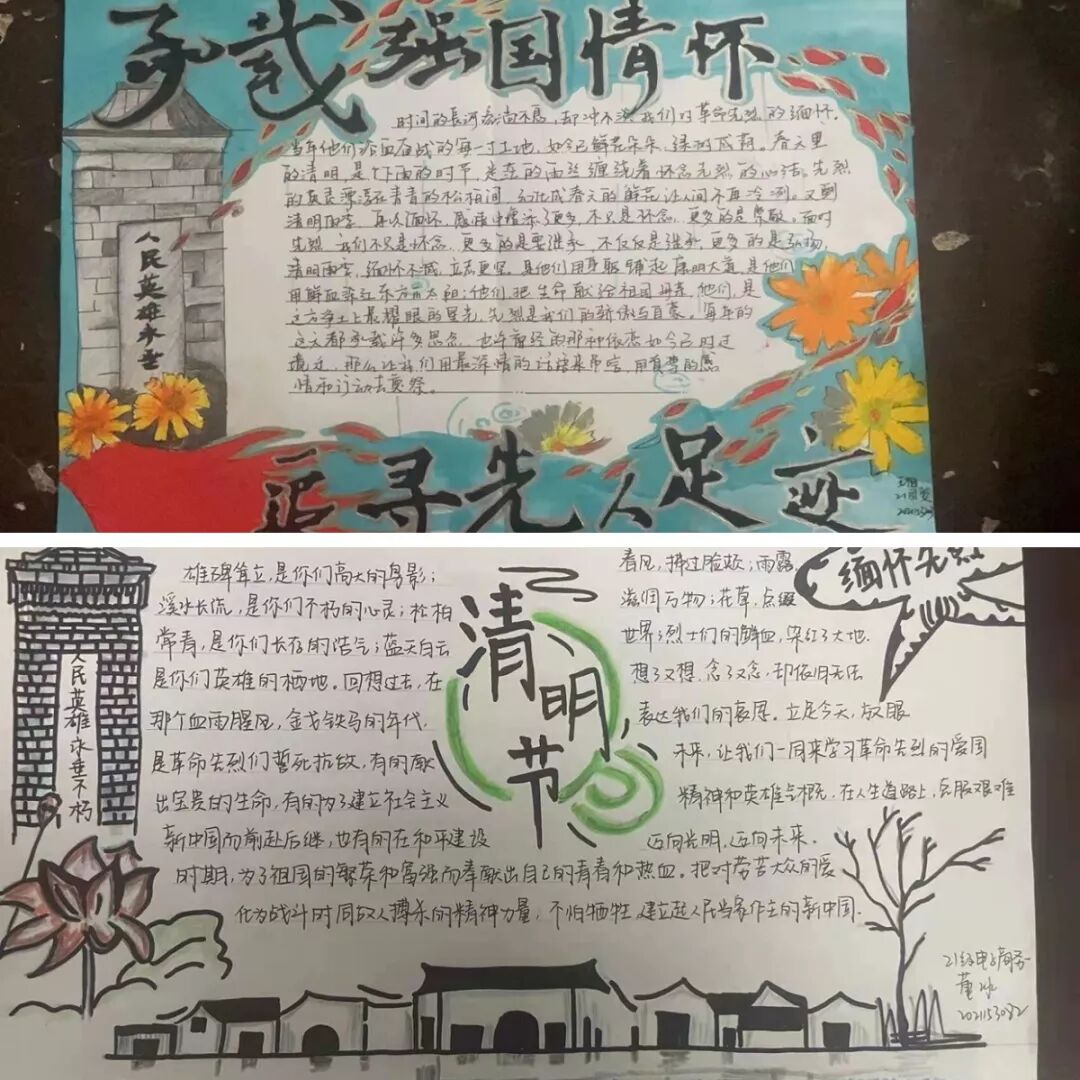 承载强国情怀
时间的长河奔淌不息,却冲不淡我们对革命先烈的缅怀.
当年他们浴血奋战的每一寸土地,如今已鲜花朵朵,绿树成荫。春天里
的清明,是个下雨的时节,是在的雨丝缠绕着怀念先烈的心结。先烈
的英灵漂荡在青青的松柏间,幻化成春天的鲜花,让人间不再冷冽。又到
清明雨季,再次缅怀,感慨中增添了更多,不只是怀念,更多的是崇敬。面对
先烈,我们不只是怀念,更多的是要继承,不仅仅是继承,更多的是弘扬,
清明雨季,缅怀不减,立志更坚。是他们用身躯铺起康明大道,是他们
用鲜血染红东方的太阳;他们,把生命献给祖国母亲,他们,是
这方净土上最耀眼的星光,先烈是我们的骄傲与自豪。每年的
这天都承载许多思念,也许曾经的那种依恋如今已时过
境迁,那么让我们用最深情的话语来吊唁,用真挚的感
情和行动去奠祭。
人民英雄永垂
追寻先人足迹
雄碑耸立,是你们高大的身影;
溪水长流,是你们不朽的心灵;松柏
常青,是你们长存的浩气;蓝天白云
是你们英雄的栖地。回想过去,在
那个血雨腥风,金戈铁马的年代,
是革命先烈们誓死抗敌,有的献
出宝贵的生命,有的为了建立社会主义
新中国而前赴后继,也有的在和平建设
时期,为了祖国的繁荣和富强而奉献出自己的青春和热血。把对劳苦大众的爱
化为战斗时同敌人搏杀的精神力量,不怕牺牲,建立起人民当家作主的新中国.
人民英雄永垂不朽
清明节
春风,拂过脸颊;雨露,
滋润万物;花草,点缀
世界;烈士们的鲜血,染红了大地.
想了又想,念了又念,却依旧无法
表达我们的哀思。立足今天,放眼
未来,让我们一同来学习革命先烈的爱国
精神和英雄气概,在人生道路上,克服艰难
迈向光明,迈向未来.
缅怀先烈
21级电子商务
董冰
2021153082